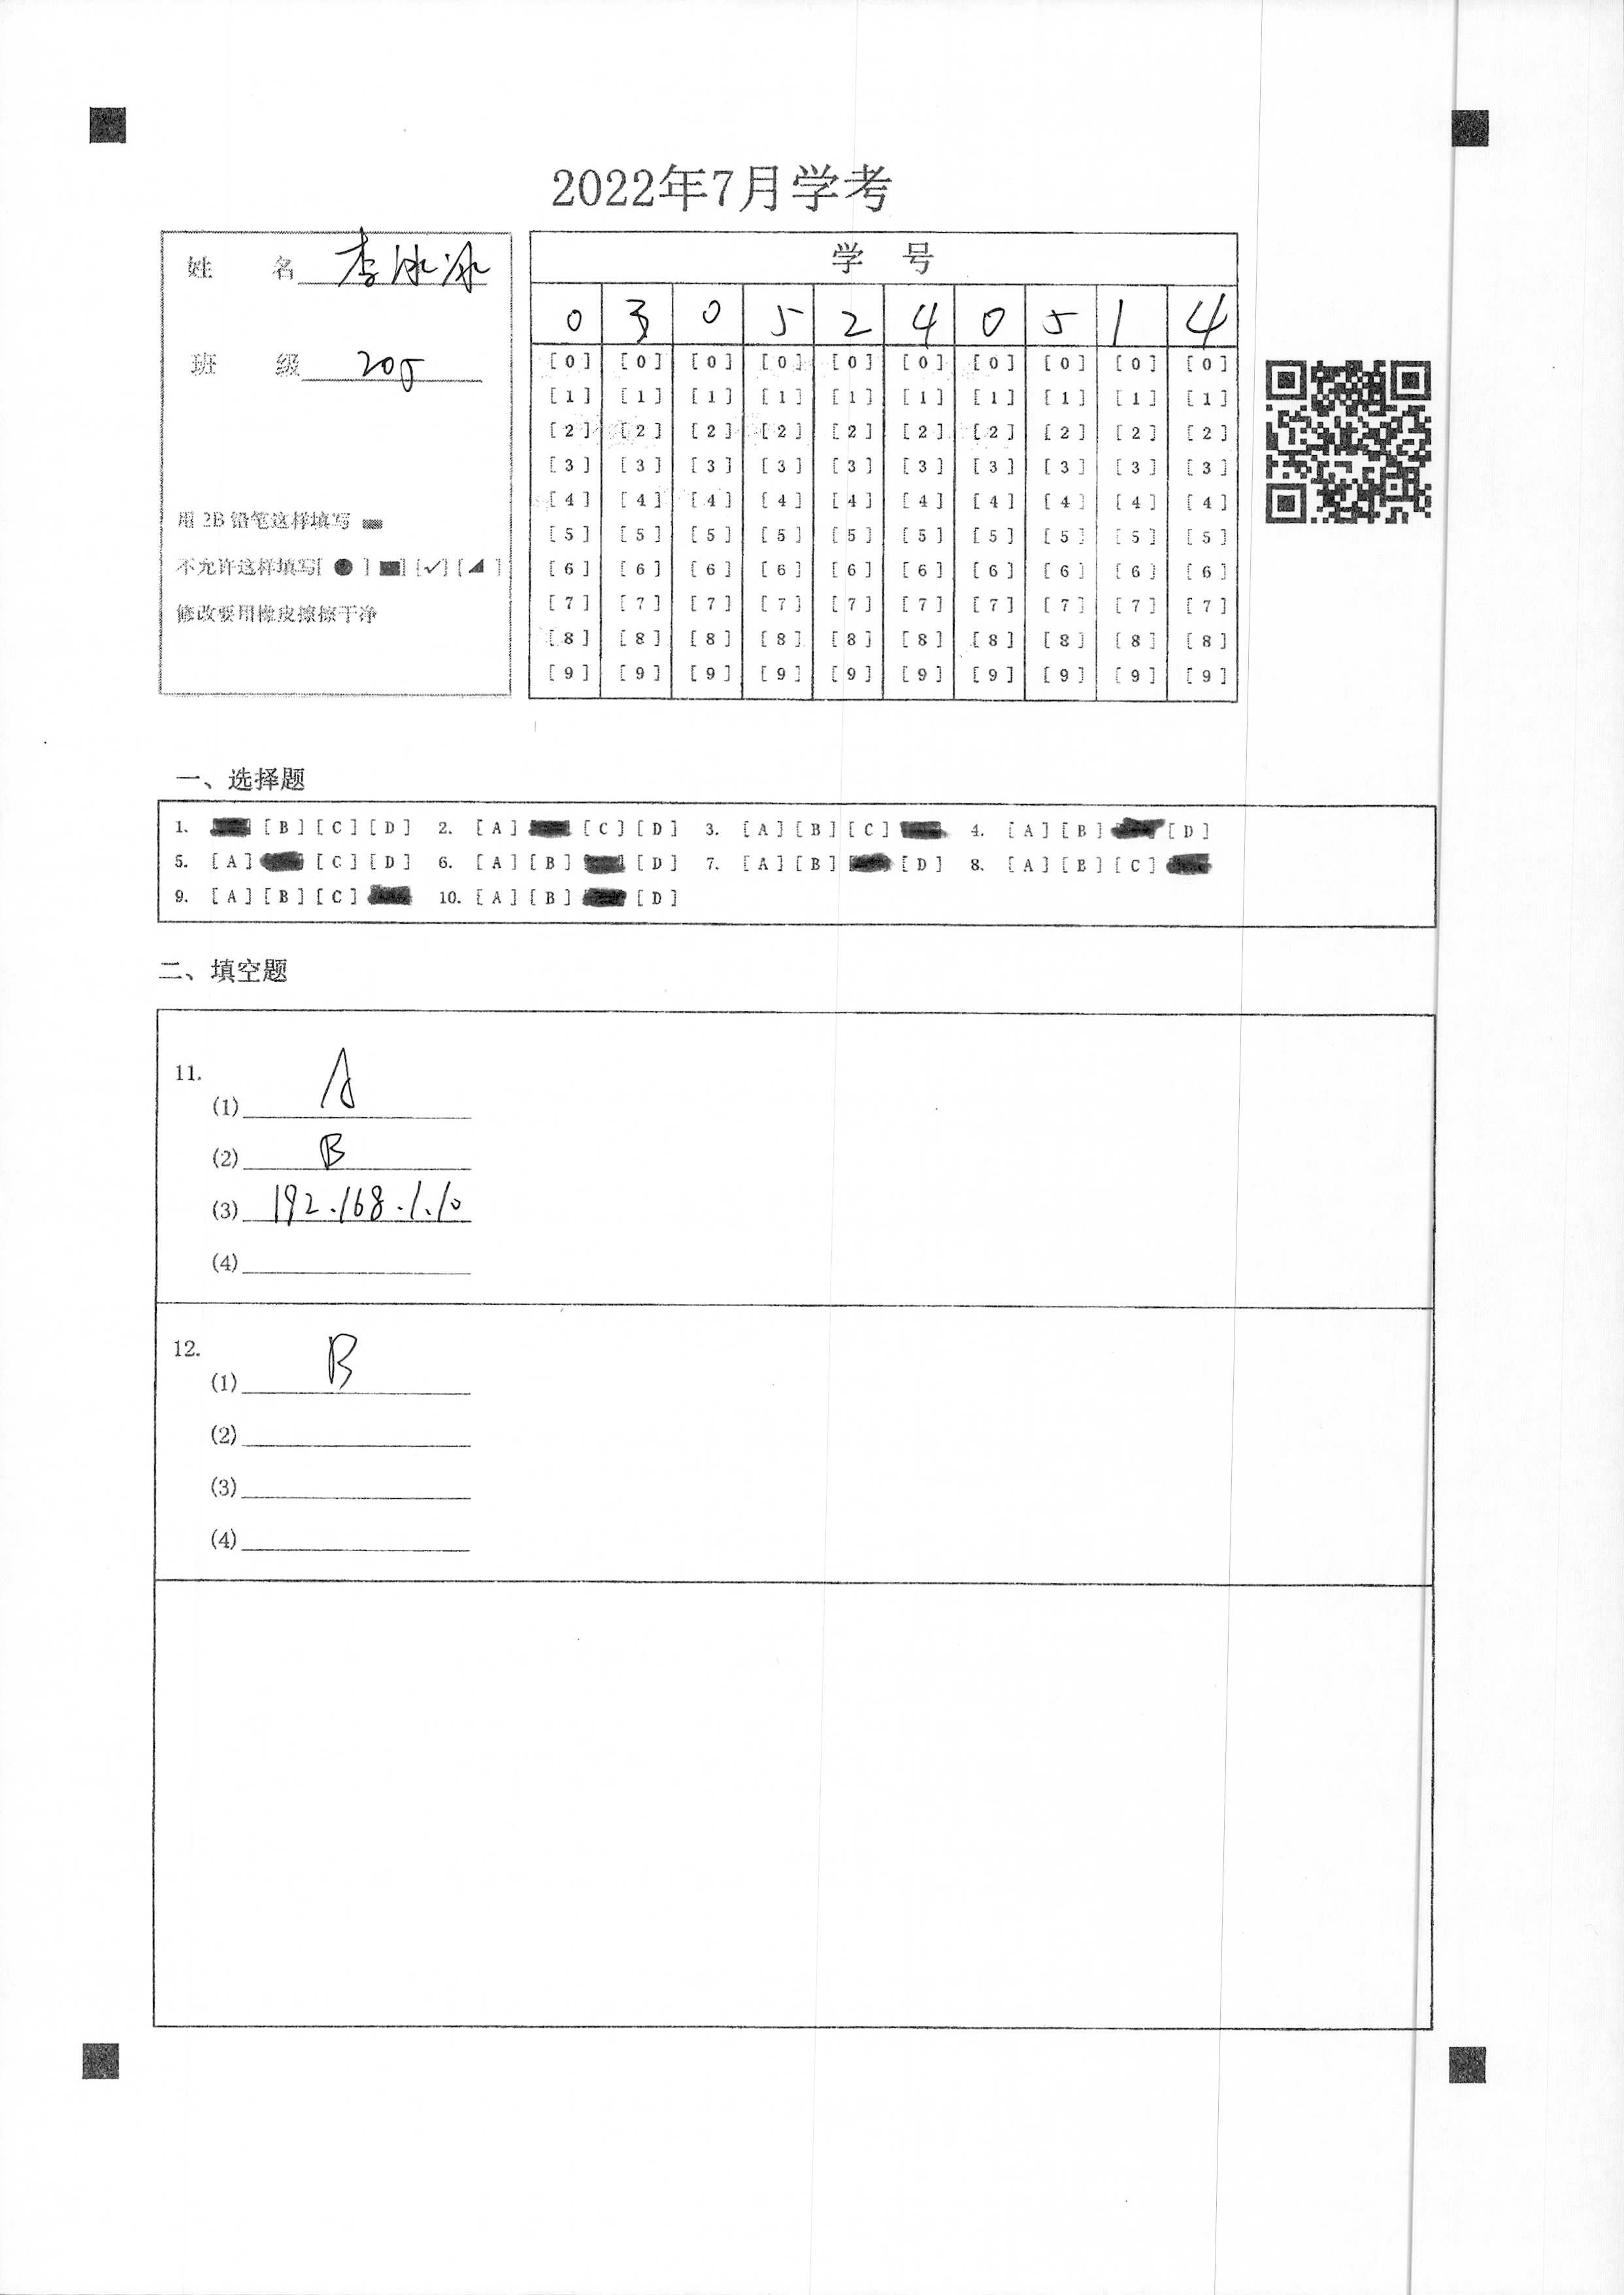 2022年7月学考
姓 名 李冰冰
班 级 205
用 2B 铅笔这样填写
不允许这样填写[ ● ] [■] [✓] [◢ ]
修改要用橡皮擦擦干净
学 号
0 3 0 5 2 4 0 5 1 4
[0] [0] [0] [0] [0] [0] [0] [0] [0] [0]
[1] [1] [1] [1] [1] [1] [1] [1] [1] [1]
[2] [2] [2] [2] [2] [2] [2] [2] [2] [2]
[3] [3] [3] [3] [3] [3] [3] [3] [3] [3]
[4] [4] [4] [4] [4] [4] [4] [4] [4] [4]
[5] [5] [5] [5] [5] [5] [5] [5] [5] [5]
[6] [6] [6] [6] [6] [6] [6] [6] [6] [6]
[7] [7] [7] [7] [7] [7] [7] [7] [7] [7]
[8] [8] [8] [8] [8] [8] [8] [8] [8] [8]
[9] [9] [9] [9] [9] [9] [9] [9] [9] [9]
一、选择题
1. [B] [C] [D] 2. [A] [C] [D] 3. [A] [B] [C] 4. [A] [B] [D]
5. [A] [C] [D] 6. [A] [B] [D] 7. [A] [B] [D] 8. [A] [B] [C]
9. [A] [B] [C] 10. [A] [B] [D]
二、填空题
11.
(1) A
(2) B
(3) 192.168.1.10
(4)
12.
(1) B
(2)
(3)
(4)